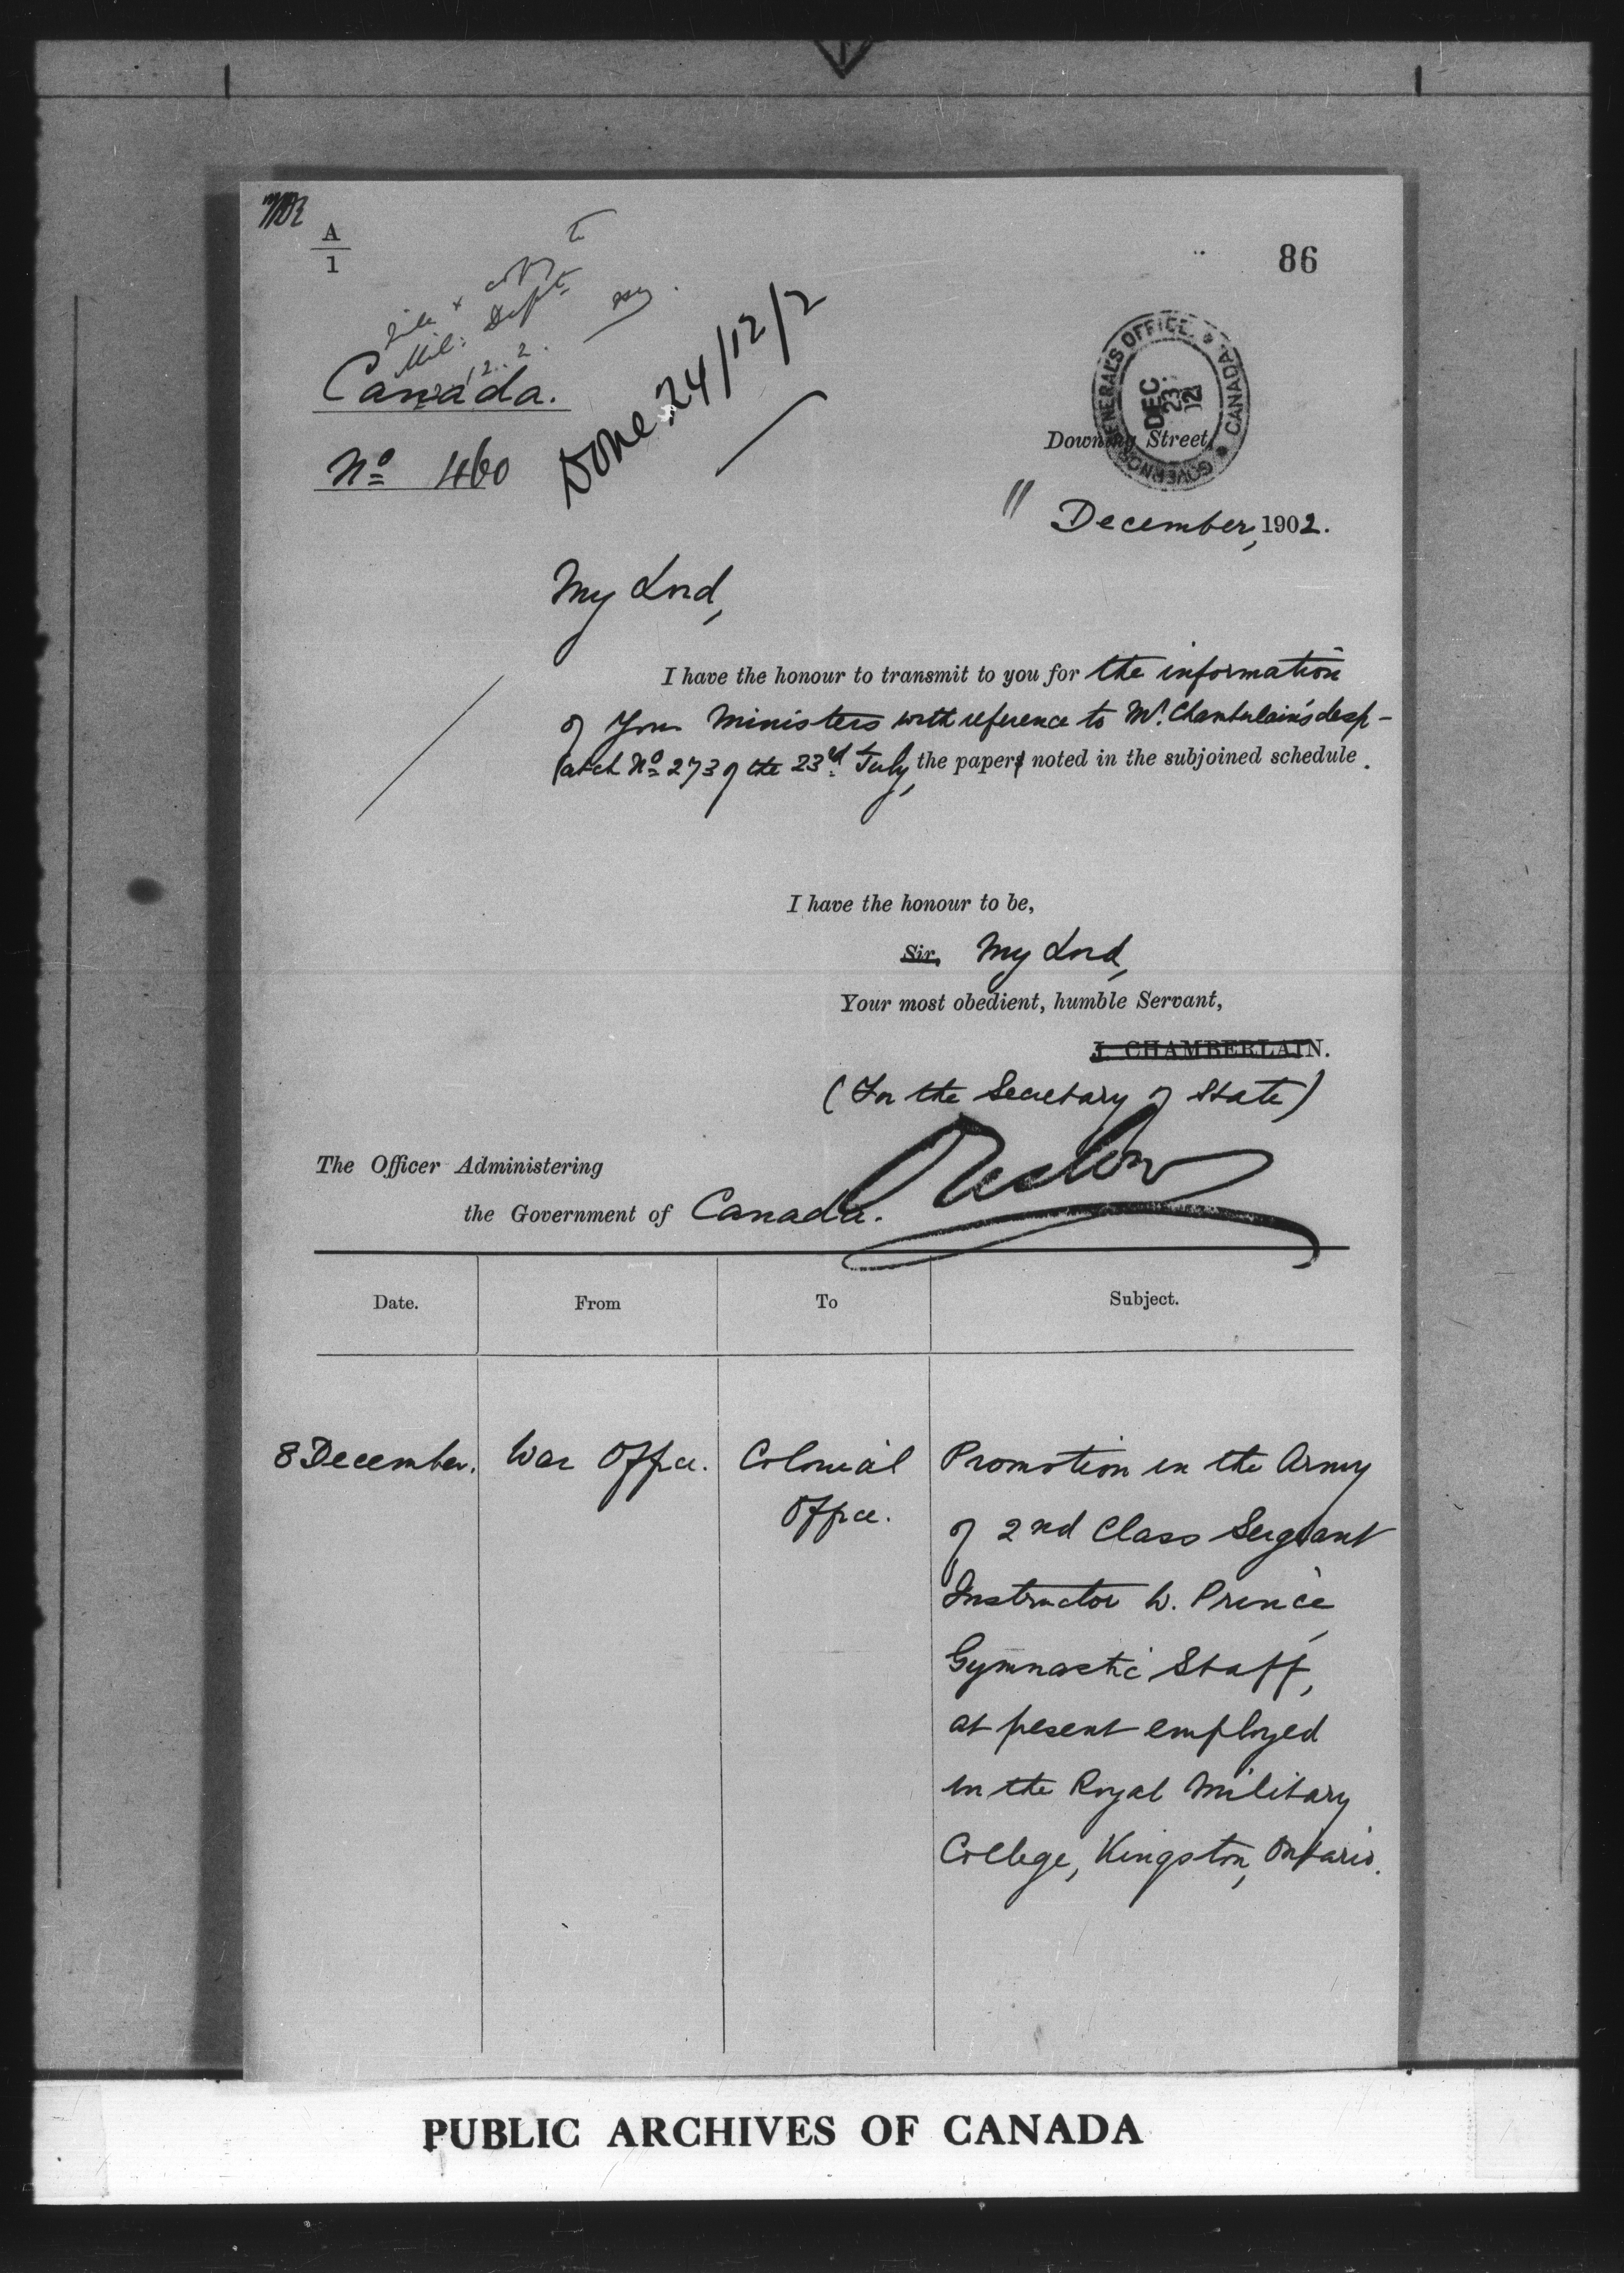 A
1
86
file & copy to
Mil: Dept
Canada.
Done 24/12/2
No 460
GOVERNOR GENERAL'S OFFICE * CANADA *
DEC
23
12
Downing Street,
11 December, 1902.
My Lord,
I have the honour to transmit to you for the information
of Your Ministers with reference to Mr. Chamberlain's desp-
atch No 273 of the 23rd July, the paper noted in the subjoined schedule.
I have the honour to be,
Sir, My Lord,
Your most obedient, humble Servant,
J. CHAMBERLAIN.
(For the Secretary of State)
Onslow
The Officer Administering
the Government of Canada.
Date. From To Subject.
8 December. War Office. Colonial Promotion in the Army
Office. of 2nd Class Sergeant
Instructor W. Prince,
Gymnastic Staff,
at present employed
in the Royal Military
College, Kingston, Ontario.
PUBLIC ARCHIVES OF CANADA